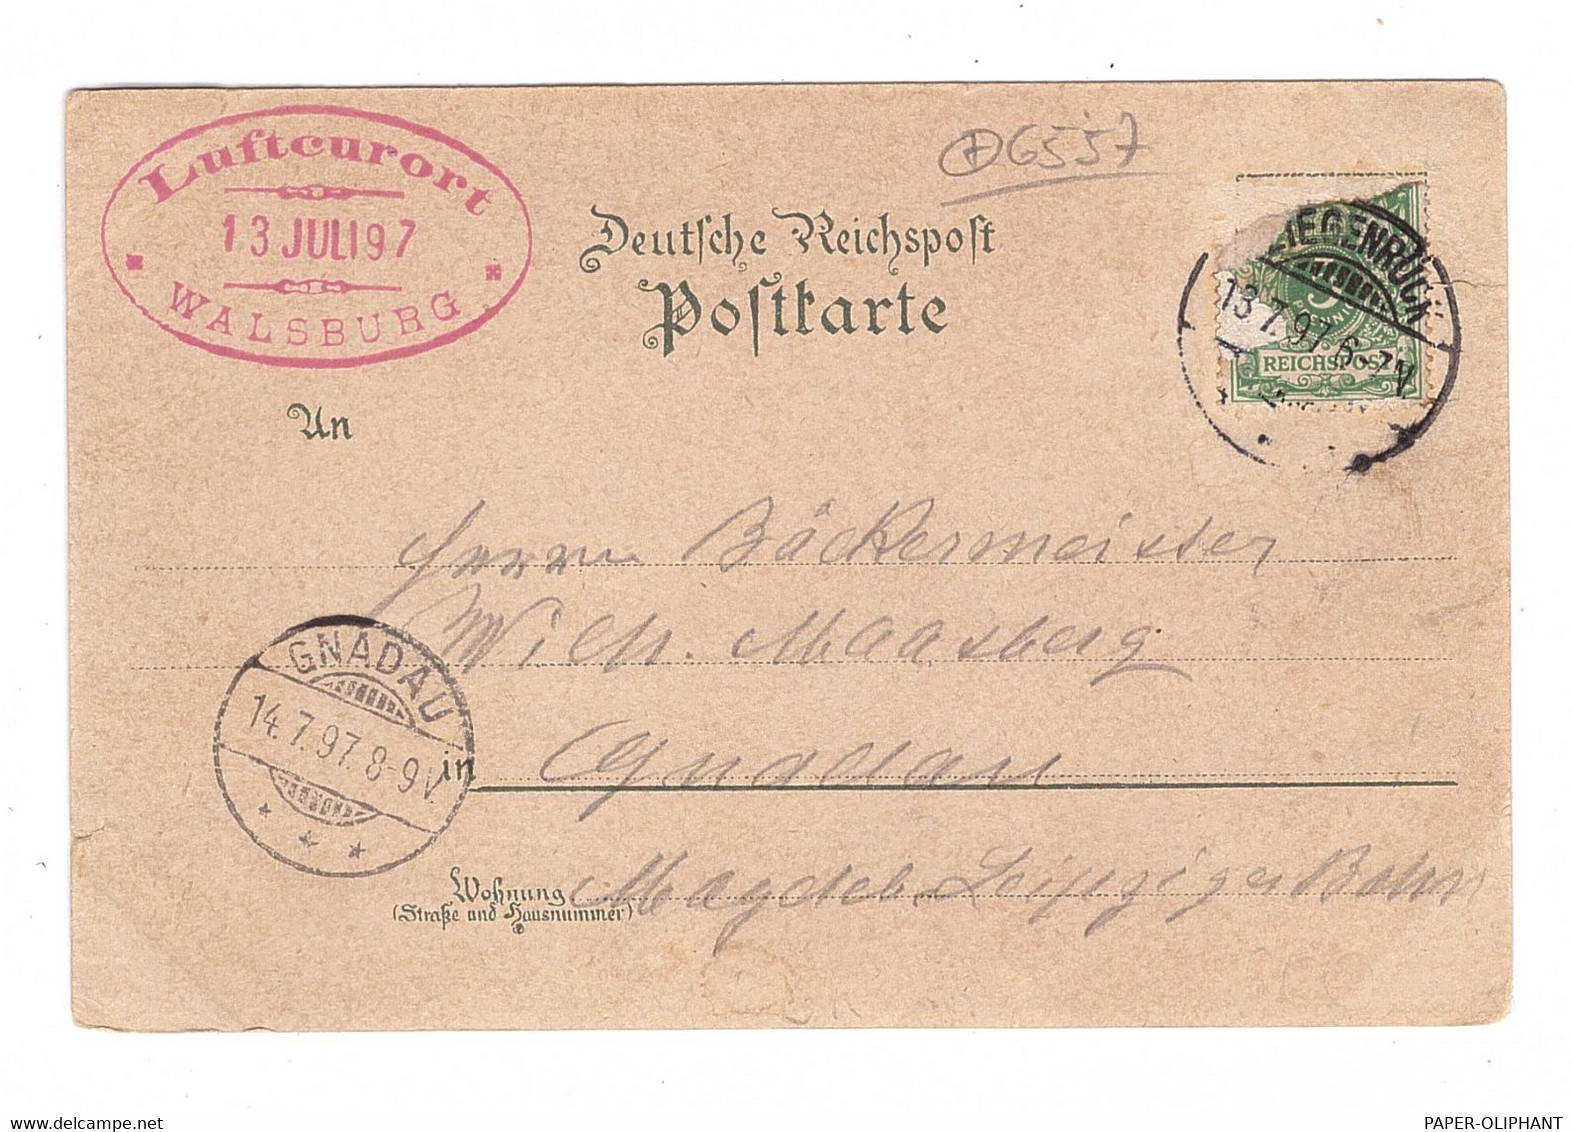 Luftcurort
13 JULI 97
WALSBURG
6557
Deutsche Reichspost
Postkarte
ZIEGENRÜCK
13.7.97.6-7V.
REICHSPOST
An
Herrn Bäckermeister
Wilh. Maasberg
GNADAU
14.7.97.8-9V.
in Gnadau
Wohnung Magdeb. Leipziger Bahn
(Straße und Hausnummer)
PAPER-OLIPHANT